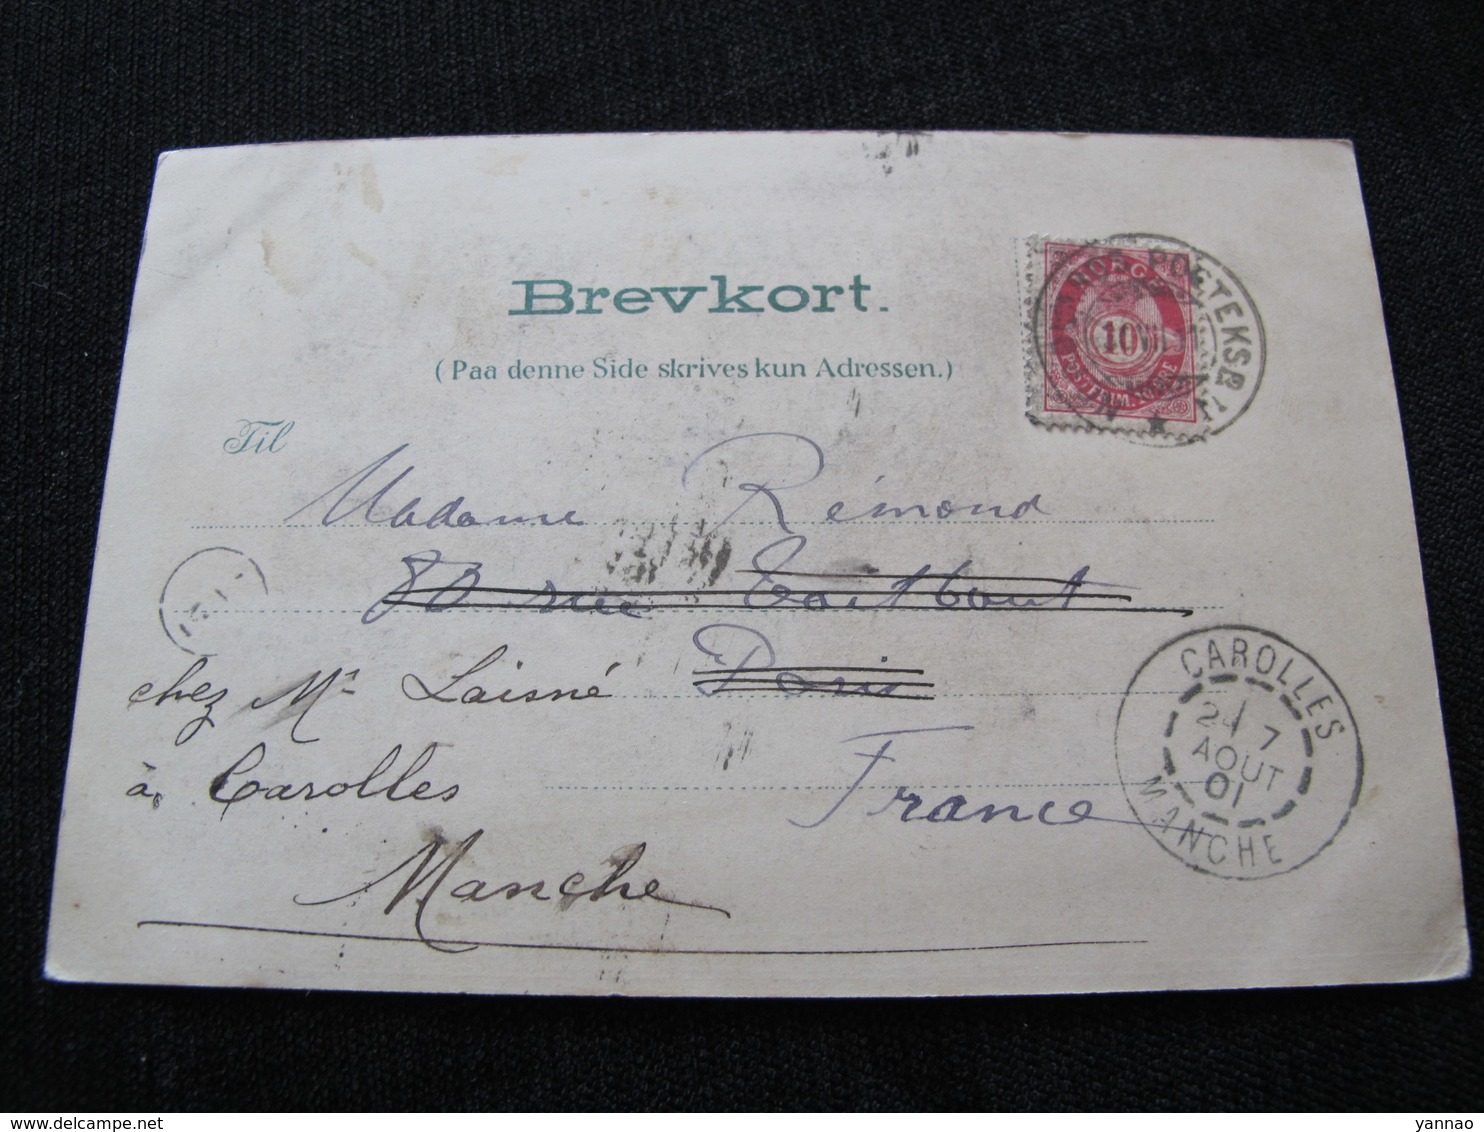 Brevkort.
(Paa denne Side skrives kun Adressen.)
NORGE
10
POSTFRIM.
POSTEKSP.
Til
Madame Rémond
80 rue Taitbout
Paris
chez Mr Laisné
à Carolles
France
Manche
CAROLLES
24 7
AOUT
01
MANCHE
delcampe.net
yannao